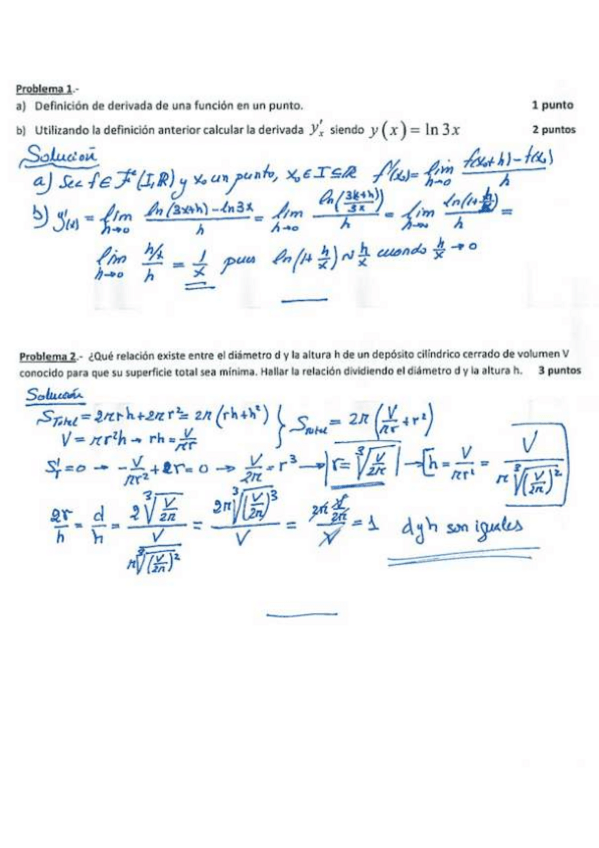 Problema 1.-
a) Definición de derivada de una función en un punto. 1 punto
b) Utilizando la definición anterior calcular la derivada y'ₓ siendo y(x) = ln 3x 2 puntos
Solución
a) Sea f ∈ F(I,ℝ) y x₀ un punto, x₀ ∈ I ⊆ ℝ f'(x₀) = lim h→0 (f(x₀+h) - f(x₀))/h
b) y'(x) = lim h→0 (ln(3x+h) - ln3x)/h = lim h→0 ln((3x+h)/3x)/h = lim h→0 ln(1+h/x)/h =
lim h→0 (h/x)/h = 1/x pues ln(1+h/x) ~ h/x cuando h/x → 0
Problema 2.- ¿Qué relación existe entre el diámetro d y la altura h de un depósito cilíndrico cerrado de volumen V
conocido para que su superficie total sea mínima. Hallar la relación dividiendo el diámetro d y la altura h. 3 puntos
Solución
S_Total = 2πrh + 2πr² = 2π(rh + h²) } S_Total = 2π(V/πr + r²)
V = πr²h → rh = V/πr
S'_T = 0 → -V/πr² + 2r = 0 → V/2π = r³ → r = ∛(V/2π) → h = V/πr² = V/(π ∛((V/2π)²))
2r/h = d/h = 2∛(V/2π) / (V/(π∛((V/2π)²))) = 2π∛((V/2π)³)/V = (2π V/2π)/V = 1 d y h son iguales